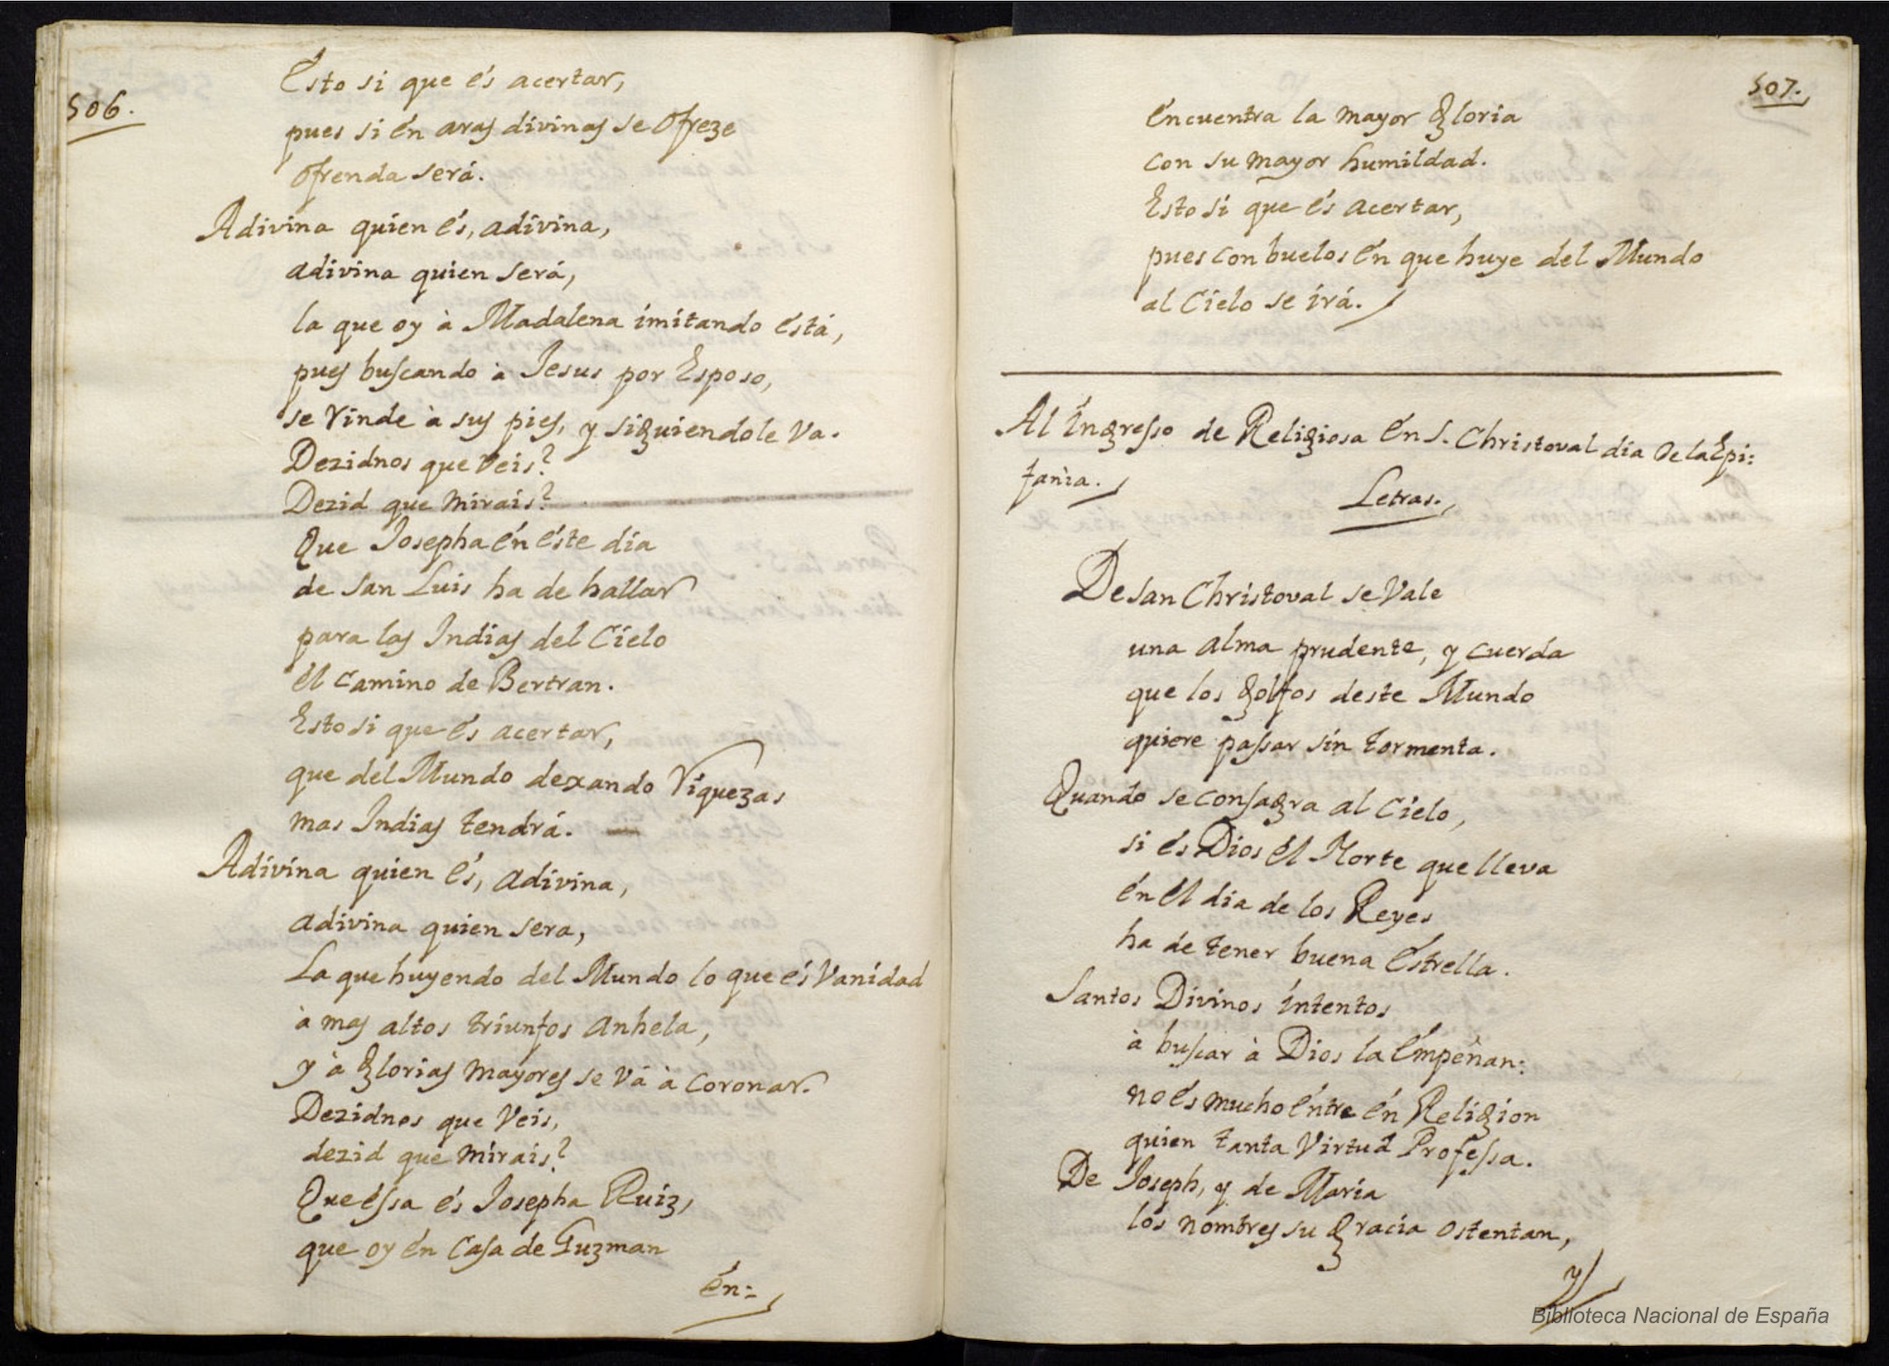 506.
Esto si que és acertar,
pues si én aras divinas se ofreze
ofrenda será.
Adivina quien és, adivina,
adivina quien será,
la que oy à Madalena imitando está,
pues buscando à Jesus por Esposo,
se rinde à sus pies, y siguiendole va.
Dezidnos que veis?
Dezid que mirais?
Que Josepha én éste dia
de San Luis ha de hallar
para las Indias del Cielo
él camino de Bertran.
Esto si que és acertar,
que del Mundo dexando riquezas
mas Indias tendrá.
Adivina quien és, adivina,
adivina quien sera,
La que huyendo del Mundo lo que és vanidad
à mas altos triunfos anhela,
y à glorias mayores se vá à coronar.
Dezidnos que veis,
dezid que mirais?
Que éssa és Josepha Ruiz,
que oy én Casa de Guzman
én:
507.
éncuentra la mayor gloria
con su mayor humildad.
Esto si que és acertar,
pues con buelos én que huye del Mundo
al Cielo se irá.
Al Ingresso de Religiosa én S. Christoval dia de la Epi:
fania.
Letras.
De San Christoval se vale
una alma prudente, y cuerda
que los golfos deste Mundo
quiere passar sin tormenta.
Quando se consagra al Cielo,
si és Dios él Norte que lleva
én él dia de los Reyes
ha de tener buena éstrella.
Santos Divinos intentos
à buscar à Dios la émpeñan:
no és mucho éntre én Religion
quien tanta virtud Professa.
De Joseph, y de Maria
los nombres su gracia ostentan,
y
Biblioteca Nacional de España